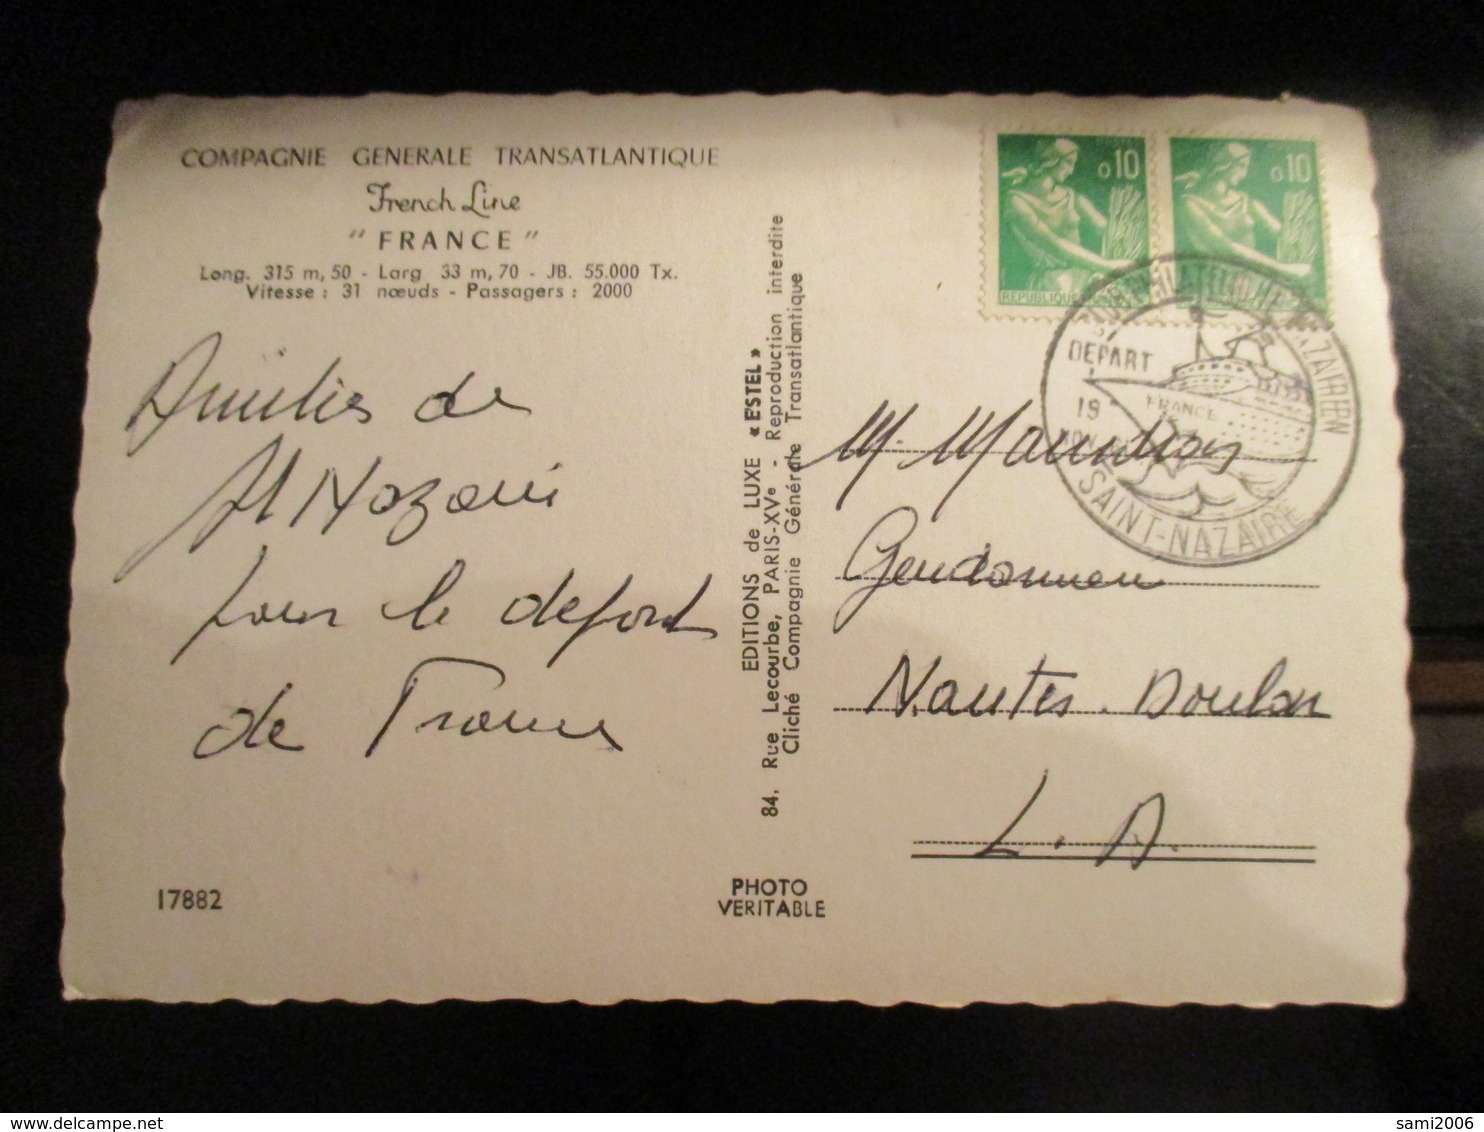 COMPAGNIE GENERALE TRANSATLANTIQUE
French Line
" FRANCE "
Long. 315 m, 50 - Larg 33 m, 70 - JB. 55.000 Tx.
Vitesse : 31 nœuds - Passagers : 2000
Amitiés de
St Nazaire
pour le départ
de France
17882
EDITIONS de LUXE « ESTEL »
84. Rue Lecourbe, PARIS-XVe - Reproduction interdite
Cliché Compagnie Générale Transatlantique
PHOTO
VERITABLE
0,10
0,10
REPUBLIQUE
DEPART
19
FRANCE
SAINT-NAZAIRE
M.
Nantes. Doulon
L. A.
sami2006